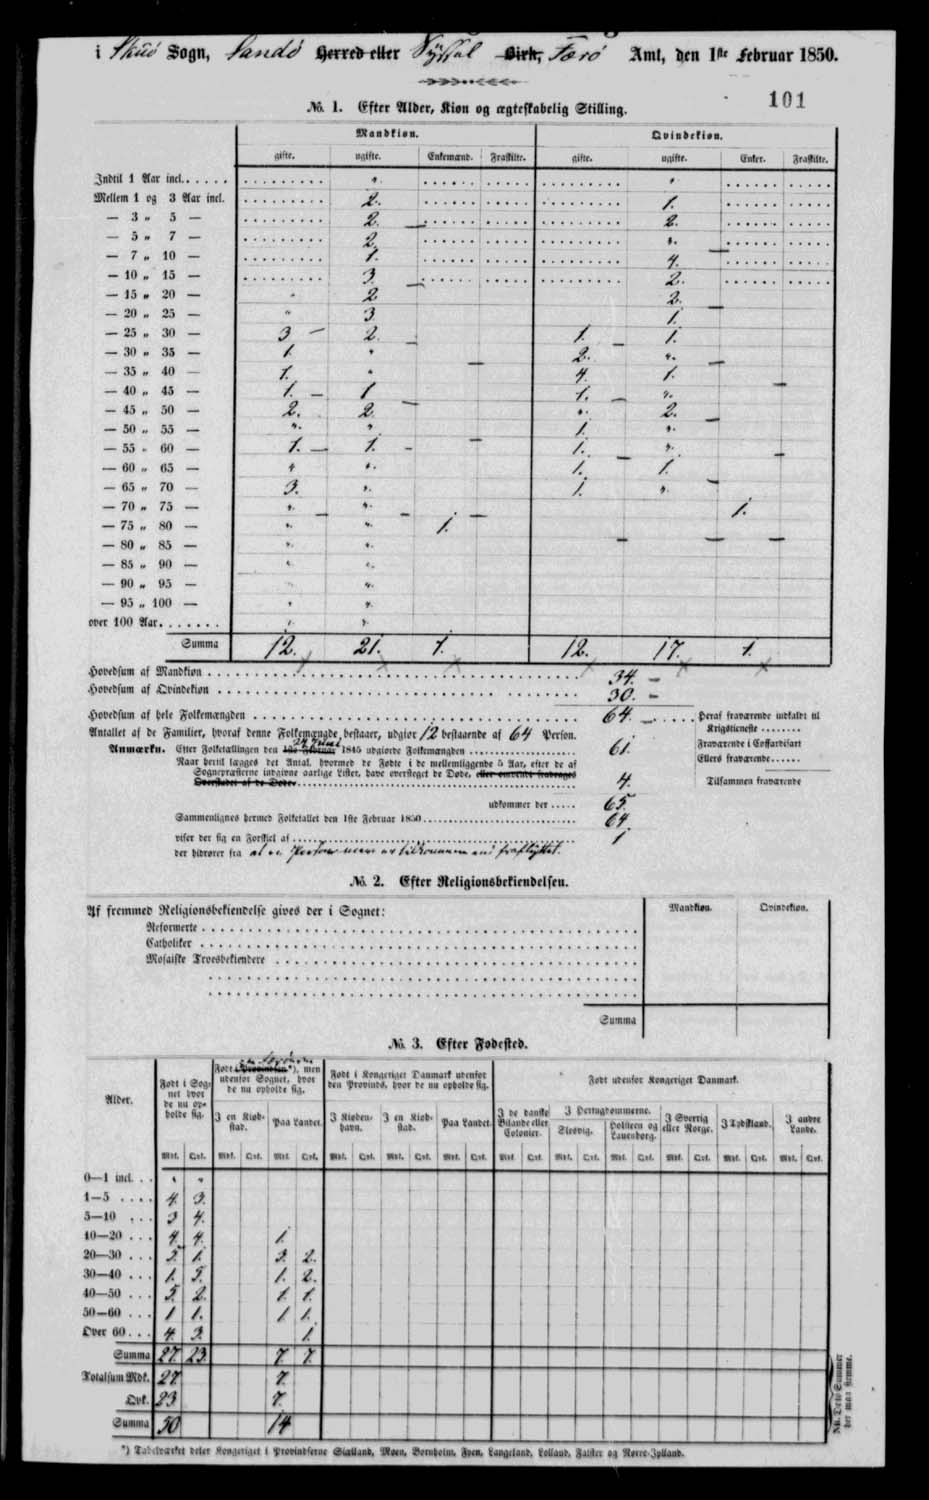 i Skuø Sogn, Sandø Herred eller Syssel Birk, Færø Amt, den 1ste Februar 1850.
101
No. 1. Efter Alder, Kiøn og ægteskabelig Stilling.
Mandkiøn. Qvindekiøn.
gifte. ugifte. Enkemænd. Fraskilte. gifte. ugifte. Enker. Fraskilte.
Indtil 1 Aar incl. . . . . . " "
Mellem 1 og 3 Aar incl. 2. 1.
— 3 " 5 — 2. 2.
— 5 " 7 — 2. "
— 7 " 10 — 1. 4.
— 10 " 15 — 3. 2.
— 15 " 20 — " 2 2.
— 20 " 25 — " 3. 1.
— 25 " 30 — 3 2. 1. 1.
— 30 " 35 — 1. " 2. "
— 35 " 40 — 1. " 4. 1.
— 40 " 45 — 1. 1 1. "
— 45 " 50 — 2. 2. " 2.
— 50 " 55 — " " 1. "
— 55 " 60 — 1. 1. 1. "
— 60 " 65 — " " 1. 1.
— 65 " 70 — 3. " 1. "
— 70 " 75 — " " 1.
— 75 " 80 — " " 1.
— 80 " 85 — " "
— 85 " 90 — " "
— 90 " 95 — " "
— 95 " 100 — " "
over 100 Aar. . . . . . . " "
Summa 12. 21. 1. 12. 17. 1.
Hovedsum af Mandkiøn 34.
Hovedsum af Qvindekiøn 30.
Hovedsum af hele Folkemængden 64. Heraf fraværende udkaldt til
Krigstieneste
Antallet af de Familier, hvoraf denne Folkemængde bestaaer, udgiør 12 bestaaende af 64 Person.
Anmærkn. Efter Folketællingen den 1ste Februar 1845 udgiorde Folkemængden 61. Fraværende i Coffardifart
Naar hertil lægges det Antal, hvormed de Fødte i de mellemliggende 5 Aar, efter de af Ellers fraværende
Sognepræsterne indgivne aarlige Lister, have oversteget de Døde, eller omvendt fradrages
Overskudet af de Døde 4. Tilsammen fraværende
udkommer der . . . . . 65.
Sammenlignes hermed Folketallet den 1ste Februar 1850 64.
viser der sig en Forskjel af 1
der hidrører fra at en Person mere er tilkommen end fraflyttet.
No. 2. Efter Religionsbekiendelsen.
Af fremmed Religionsbekiendelse gives der i Sognet: Mandkiøn. Qvindekiøn.
Reformerte
Catholiker
Mosaiske Troesbekiendere
Summa
No. 3. Efter Fødested.
Alder. Født i Sognet hvor de nu opholde sig. Født i Provindsen*), men udenfor Sognet, hvor de nu opholde sig. Født i Kongeriget Danmark udenfor den Provinds, hvor de nu opholde sig. Født udenfor Kongeriget Danmark.
I en Kiøbstad. Paa Landet. I Kiøbenhavn. I en Kiøbstad. Paa Landet. I de danske Bilande eller Colonier. I Hertugdømmerne. Slesvig. Holsteen og Lauenborg. I Sverrig eller Norge. I Tydskland. I andre Lande.
Mdk. Qvk. Mdk. Qvk. Mdk. Qvk. Mdk. Qvk. Mdk. Qvk. Mdk. Qvk. Mdk. Qvk. Mdk. Qvk. Mdk. Qvk. Mdk. Qvk. Mdk. Qvk. Mdk. Qvk.
0—1 incl. . . " "
1—5 . . . . 4. 3.
5—10 . . . 3 4.
10—20 . . . 4. 4. 1.
20—30 . . . 5. 1. 3. 2.
30—40 . . . 1. 5. 1. 2.
40—50 . . . 5. 2. 1. 1.
50—60 . . . 1 1. 1 1.
Over 60 . . . 4. 3. 1.
Summa 27. 23. 7. 7.
Totalsum Mdk. 27. 7.
Qvk. 23 7.
Summa 50 14
Nb. Dette Summer
der maa stemme.
*) Tabelværket deler Kongeriget i Provindserne Siælland, Møen, Bornholm, Fyen, Langeland, Lolland, Falster og Nørre-Jylland.